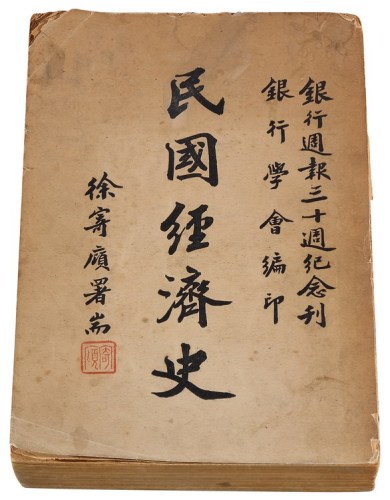 銀行週報三十週紀念刊
銀行學會編印
民國經濟史
徐寄廎署耑
寄廎